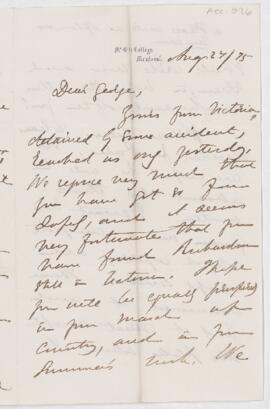 Acc. 926
McGill College
Montreal
Aug 24/75
Dear George,
Yours from Victoria,
detained by some accident,
reached us only yesterday.
We rejoice very much that
you have got so far
safely, and it seems
very fortunate that you
have found Richardson
still in Victoria. I hope
you will be equally prospered
in your march up
country, and in your
Summer's work. We